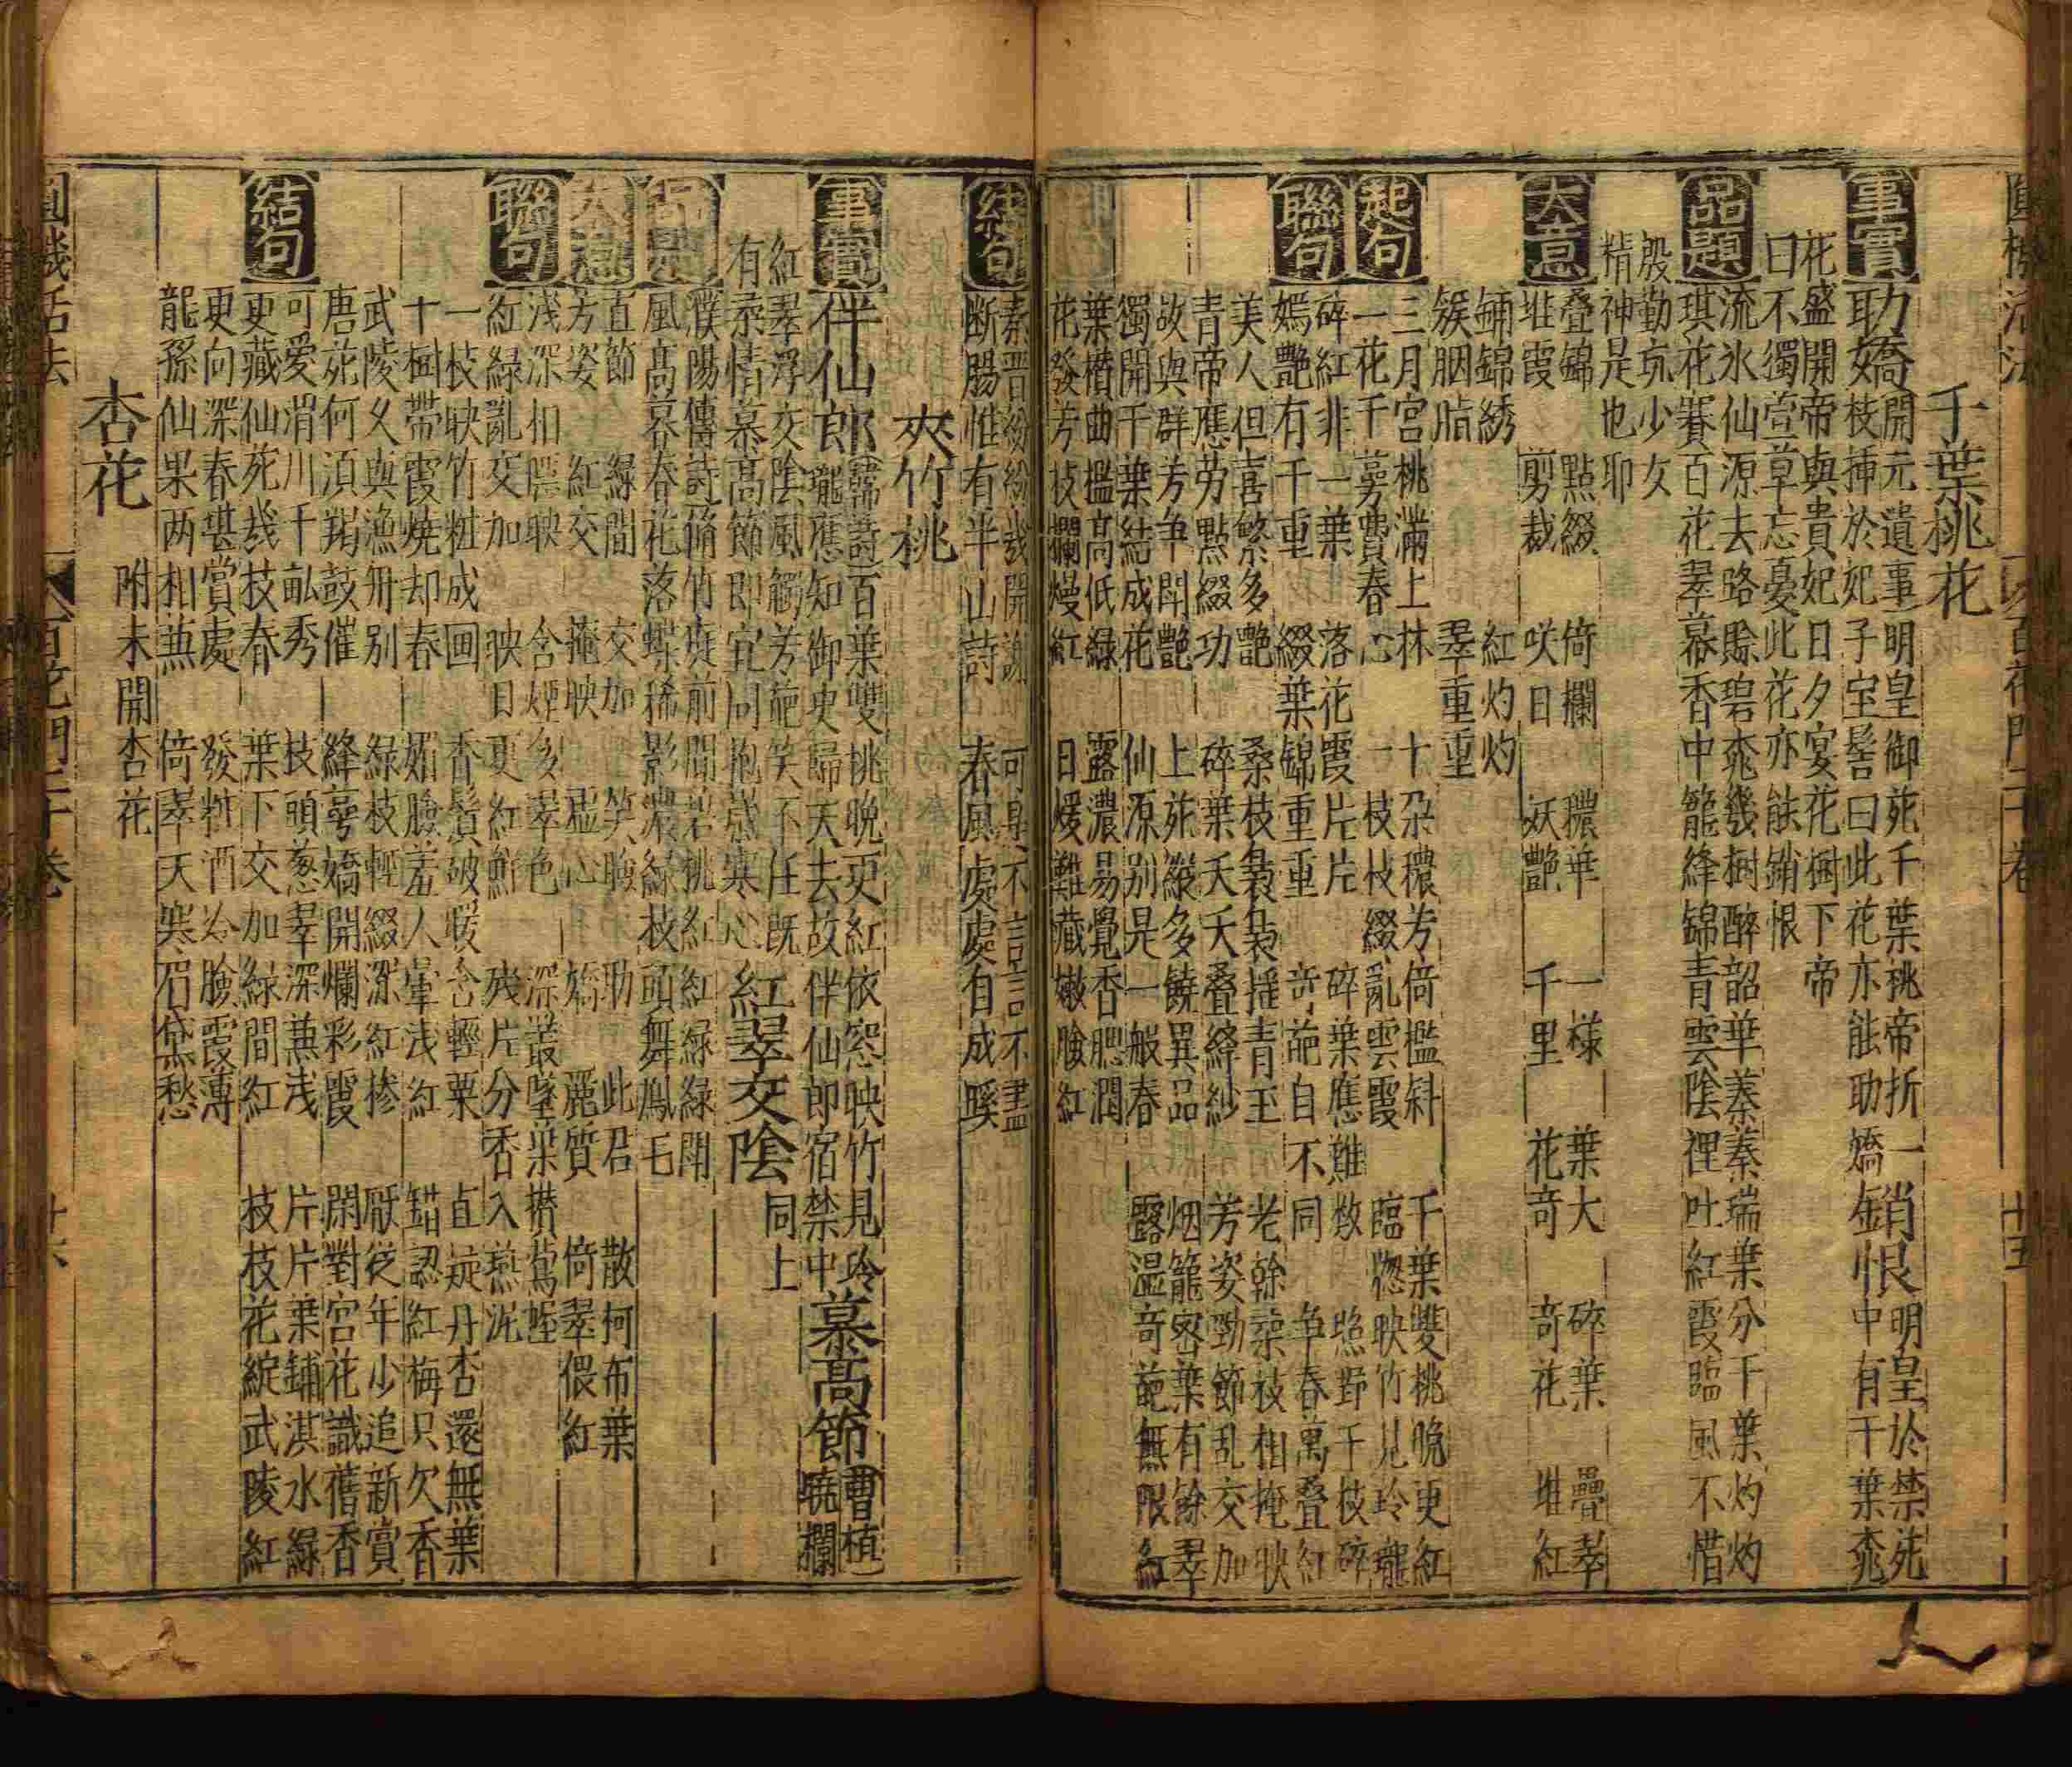 圓機活法 百花門二十卷 十五
千葉桃花
事實 助嬌 開元遺事明皇御苑千葉桃帝折一
枝揷於妃子宝髻曰此花亦能助嬌
銷恨 明皇於禁苑
中有千葉桃
花盛開帝與貴妃日夕宴花樹下帝
曰不獨萱草忘憂此花亦能銷恨
品題 流氷仙源去路賒碧桃幾樹醉韶華蓁蓁瑞葉分千葉灼灼
琪花賽百花翠幕香中籠絳錦青雲陰裡吐紅霞臨風不惜
殷勤亢少女
精神是也耶
大意 叠錦 點綴 倚欄 穠華 一様 葉大 碎葉 疊萃
堆霞 剪裁 咲日 妖艷 千里 花竒 竒花 堆紅
鋪錦綉 紅灼灼
簇胭脂 翠重重
起句 三月宮桃滿上林 十朶穠芳倚檻斜 千葉雙桃晚更紅
一花千萼費春心 一枝枝綴亂雲霞 臨窓映竹見玲瓏
聯句 碎紅非一葉 落花霞片片 碎葉應難数 照野千枝碎
嫣艷有千重 綴葉錦重重 竒葩自不同 争春萬叠紅
美人但喜繁多艷 柔枝裊裊揺青玉 老幹蘂枝相掩映
青帝應勞點綴功 碎葉夭夭叠絳紗 芳姿勁節乱交加
故與群芳争閗艷 上苑 多饒異品 烟籠密葉有餘翠
獨開千葉結成花 仙源别是一般春 露湿竒葩無限紅
葉櫕曲檻高低緑 露濃易覺香腮潤
花發芳枝爛熳紅 日煖難藏嫩臉紅
結句 秦晋紛紛幾開謝 可是不言言不盡
断腸惟有半山詩 春風處處自成蹊
夾竹桃
事實 伴仙郎 韓詩百葉雙桃晚更紅依窓映竹見玲
瓏應知御史歸天去故伴仙郎宿禁中
慕高節 曹植
曉欄
紅翠浮交陰風觸芳葩笑不任既
有柔情慕高節即宜同抱歳寒心
紅翠交陰 同上
品題 濮陽傳詩 脩竹庭前間碧桃紅紅緑緑閗
風高暮春花落蝶稀影濃緑枝頭舞鳳毛
大意 直節 緑間 交加 笑臉 助 此君 散柯布葉
芳姿 紅交 掩映 虚心 嬌 麗質 倚翠偎紅
聯句 浅深相隠映 含煙多翠色 深叢墜朶撩蔦蛭
紅緑亂交加 映日更紅鮮 残片分香入燕泥
一枝映竹粧成画 香鬂破暖含輕粟 直疑丹杏還無葉
十樹帶霞燒却春 媚臉羞人暈浅紅 錯認紅梅只欠香
武陵久與漁舟别 緑枝輕綴深紅摻 厭從年少追新賞
唐苑何湏羯鼓催 絳萼嬌開爛彩霞 閑對宮花識舊香
結句 可愛渭川千畝秀 枝頭葱翠深蕪浅 片片葉鋪淇水緑
更藏仙苑幾枝春 葉下交加緑間紅 枝枝花綻武陵紅
更向深春堪賞處 發粧酒冷臉霞薄
龍孫仙果两相蕪 倚翠天寒眉黛愁
杏花 附未開杏花
圓機活法 百花門二十卷 十六